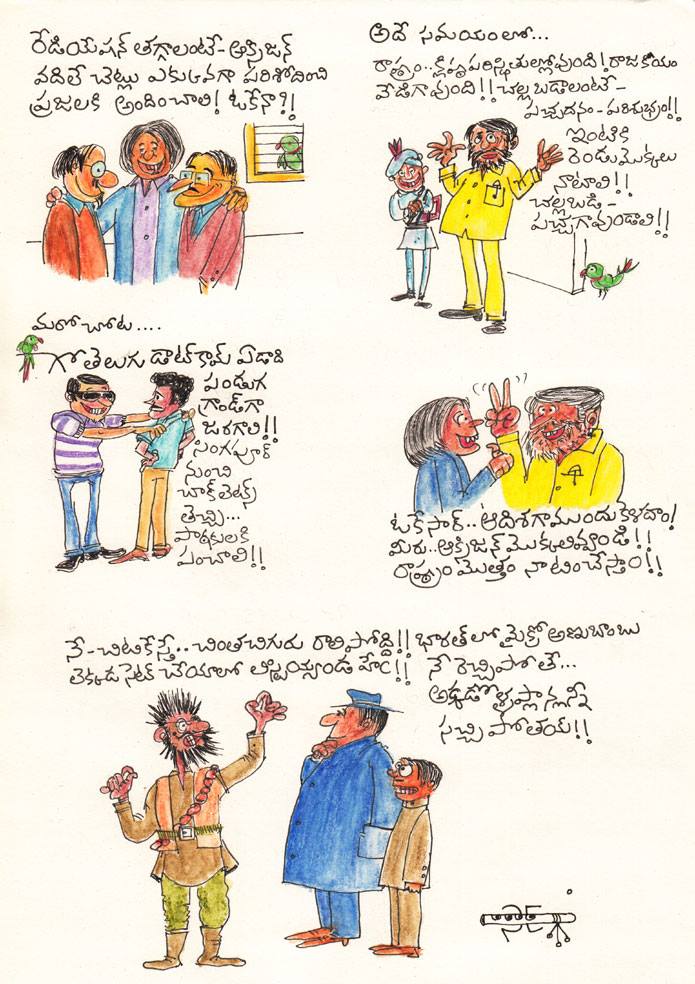 రేడియేషన్ తగ్గాలంటే- ఆక్సిజన్
వదిలే చెట్లు ఎకుఁవగా పరిశోదించి
ప్రజలకి అందించాలి! ఓకేనా?!
అదే సమయంలో...
రాష్ట్రం.. క్లిష్ట పరిస్థితుల్లోవుంది! రాజకీయం
వేడిగావుంది!! చల్లబడాలంటే-
పచ్చదనం- పరిశుభ్రం!!
ఇంటికి
రెండుమొక్కలు
నాటాలి!!
చల్లబడి-
పచ్చగావుండాలి!!
మరోచోట....
గోతెలుగు డాట్ కామ్ ఏడాది
పండుగ
గ్రాండ్ గా
జరగాలి!!
సింగపూర్
నుంచి
చాక్ లెట్స్
తెచ్చి...
పాఠకులకి
పంచాలి!!
ఓకేసార్.. ఆదిశగాముందుకెళదాం!
మీరు.. ఆక్సిజన్ మొక్కలివ్వండి!!
రాష్ట్రం మొత్తం నాటించేస్తాం!!
నే- చిటికేస్తే.. చింతచిగురు రాలిపోద్ది!! భారత్ లో మైక్రో అణుబాంబు
లెక్కడ సెటప్ చేయాలో లిస్టియ్యండ హేఁ!! నే రెచ్చిపోతే...
సచ్చిపోతయ్!!